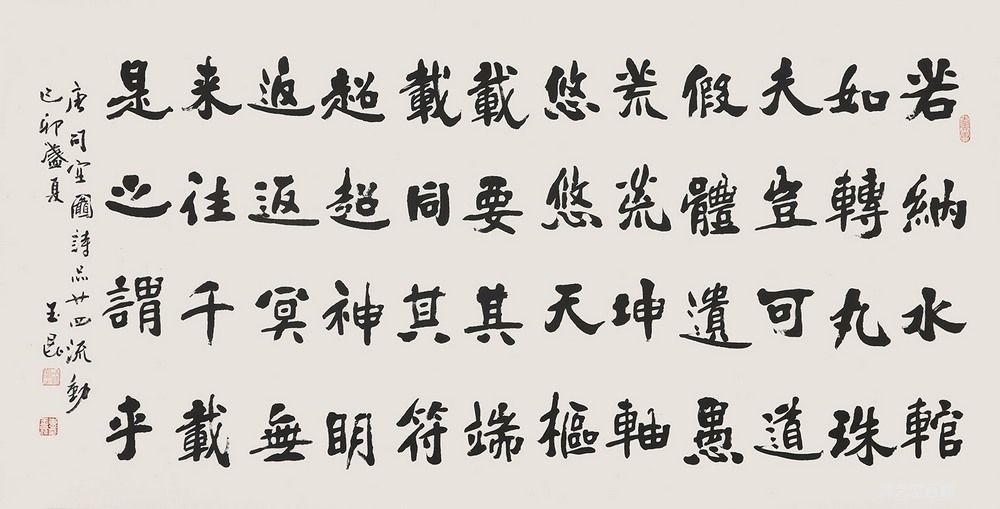 若納水輨
如轉丸珠
夫豈可道
假體遺愚
荒荒坤軸
悠悠天樞
載要其端
載同其符
超超神明
返返冥無
来往千載
是之謂乎
唐司空圖詩品廿四流動
己卯盛夏